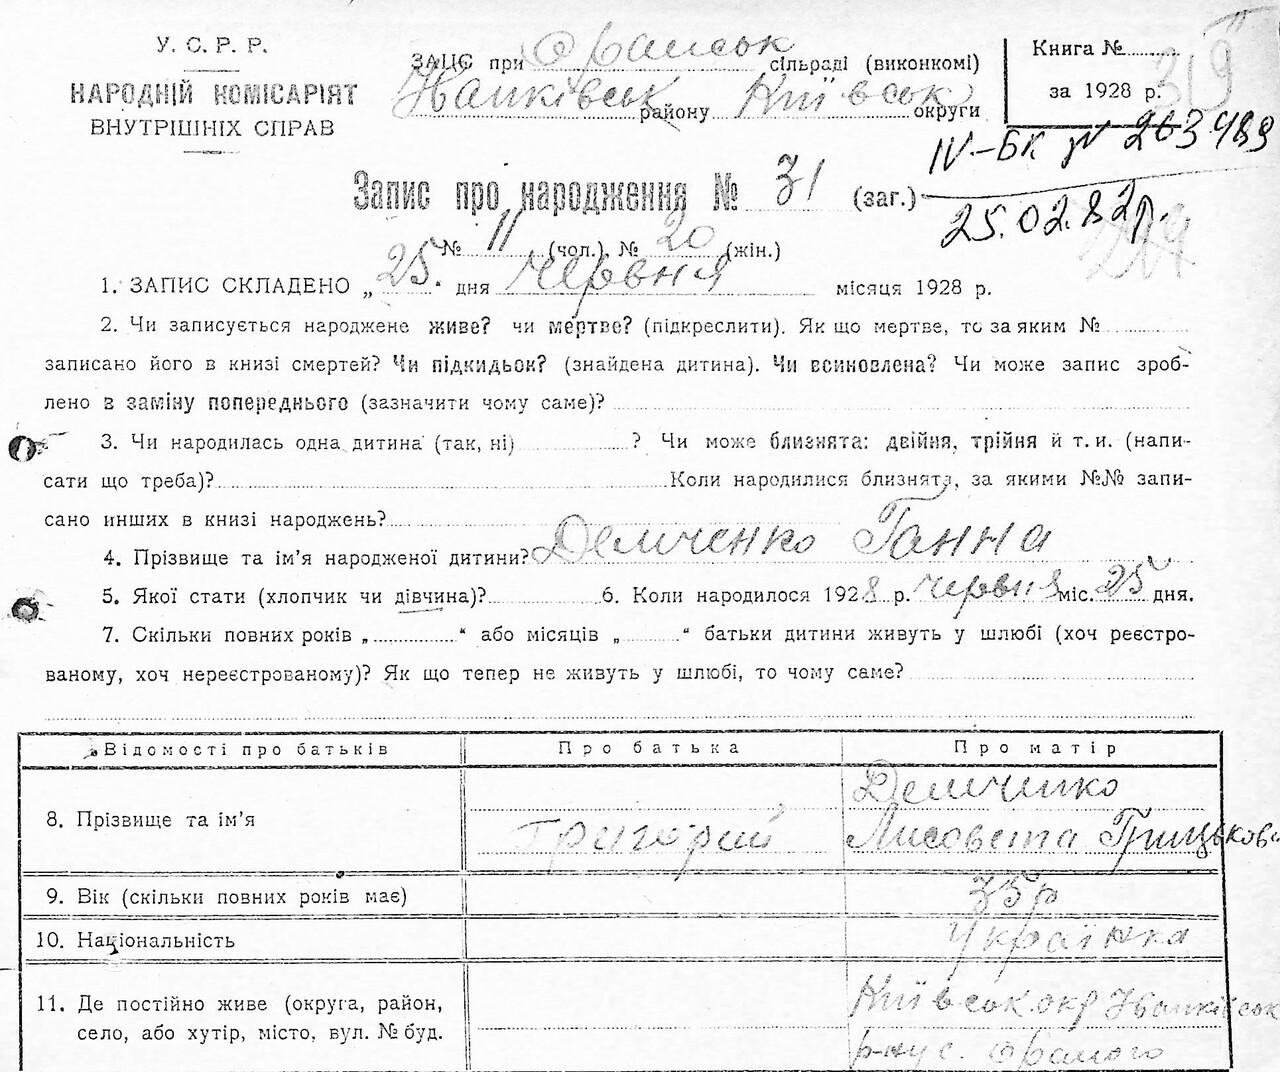 У. С. Р. Р.
НАРОДНІЙ КОМІСАРІЯТ
ВНУТРІШНІХ СПРАВ
ЗАЦС при Оранськ сільраді (виконкомі)
Іванківськ району Київськ округи
Книга №
за 1928 р.
319
IV-БК № 263489
25.02.82р.
Запис про народження № 31 (заг.)
№ 11 (чол.) № 20 (жін.)
1. ЗАПИС СКЛАДЕНО „25“ дня червня місяця 1928 р.
2. Чи записується народжене живе? чи мертве? (підкреслити). Як що мертве, то за яким №
записано його в книзі смертей? Чи підкидьок? (знайдена дитина). Чи всиновлена? Чи може запис зроб-
лено в заміну попереднього (зазначити чому саме)?
3. Чи народилась одна дитина (так, ні) ? Чи може близнята: двійня, трійня й т. и. (напи-
сати що треба)? Коли народилися близнята, за якими №№ запи-
сано инших в книзі народжень?
4. Прізвище та ім’я народженої дитини? Демченко Ганна
5. Якої стати (хлопчик чи дівчина)? 6. Коли народилося 1928 р. червня міс. 25 дня.
7. Скільки повних років „ “ або місяців „ “ батьки дитини живуть у шлюбі (хоч реєстро-
ваному, хоч нереєстрованому)? Як що тепер не живуть у шлюбі, то чому саме?
Відомості про батьків Про батька Про матір
8. Прізвище та ім’я Григорій Демчинко
Лисовета Грицьков
9. Вік (скільки повних років має) 35 р
10. Національність Українка
11. Де постійно живе (округа, район,
село, або хутір, місто, вул. № буд.
Київськ. окр Іванківськ
р-ну с.Ораного